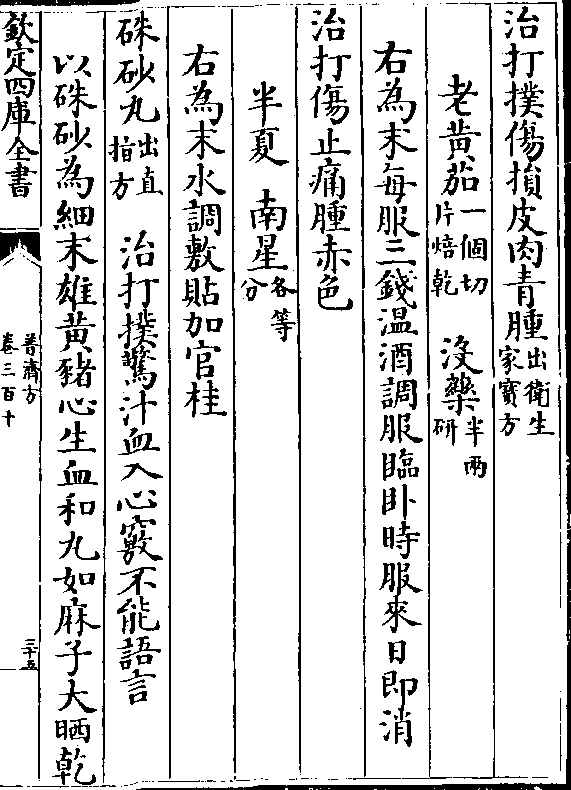 治打撲傷損皮肉青腫出衛生家寳方
老黄茄一個切片焙乾 沒藥半兩研
右為末每服三錢温酒調服臨卧時服來日即消
治打傷止痛腫赤色
半夏 南星各等分
右為末水調敷貼加官桂
硃砂丸出直指方 治打撲驚汁血入心竅不能語言
以硃砂為細末雄黄豬心生血和丸如麻子大晒乾
欽定四庫全書
普濟方
卷三百十
三十五